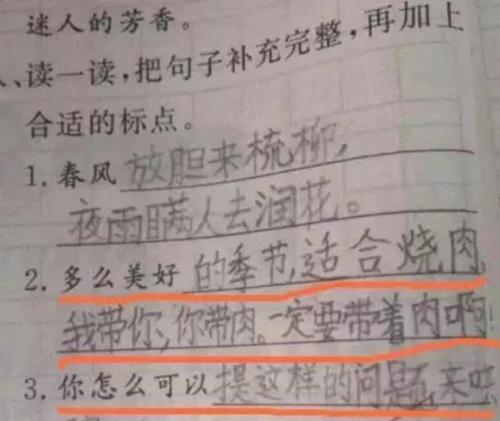 迷人的芳香。
、读一读,把句子补充完整,再加上
合适的标点。
1. 春风 放胆来梳柳,
夜雨瞒人去润花。
2. 多么美好 的季节,适合烧肉,
我带你,你带肉。一定要带着肉啊!
3. 你怎么可以 提这样的问题,来